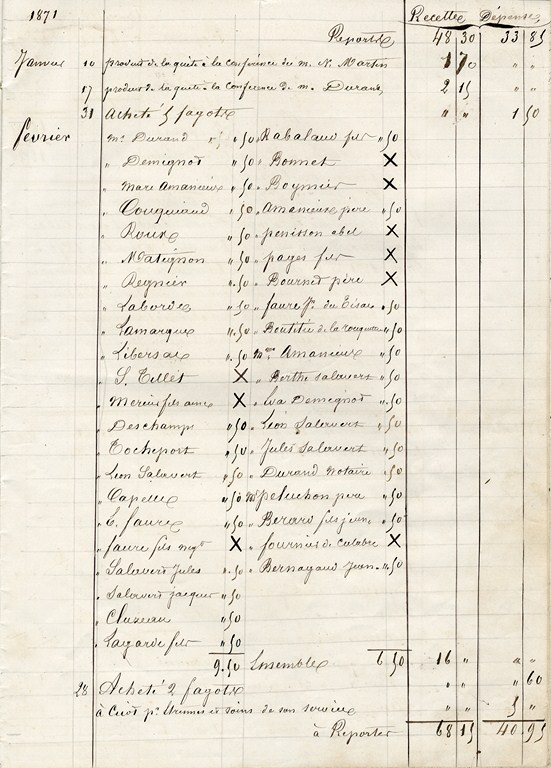 1871 Recette Dépense
Reporte 48 30 33 85
Janvier 10 produit de la quête à la conférence de m. N. Martin 1 70 " "
17 produit de la quête à la conférence de m. Durand 2 15 " "
31 Acheté 5 fagots " " 1 50
février mr Durand " 50 " Rabalaud fils " 50
" Demignot " 50 " Bonnet X
" Marc Amanieux " 50 " Boymier X
" Couguiaud " 50 " Amanieux père " 50
" Roux " 50 " penisson abel X
" Matignon " 50 " pages fils X
" Regnier " 50 " Bournet père X
" Laborde " 50 " faure " 50
" Lamarque " 50 " de la rouquette " 50
" Libersac " 50 mme Amanieux " 50
" S. Tillet X " Berthe Salavert " 50
" Mercier fils ainé X " Eva Demignot " 50
" Deschamps " 50 " Léon Salavert " 50
" Rocheport " 50 " Jules Salavert " 50
" Leon Salavert " 50 " Durand Notaire " 50
" Capelle " 50 mr peluchon père " 50
" E. faure " 50 " Berard fils jeune " 50
" faure fils negt X " fournier de X
" Salavert Jules " 50 " Bernagaud Jean " 50
" Salavert jacques " 50
" Cluzeau " 50
" Lagarde fils " 50
9.50 Ensemble 6 50 16 " " "
28 Acheté 2 fagots " " " 60
à pr étrennes et soins de son service " " 5 "
à Reporter 68 15 40 95